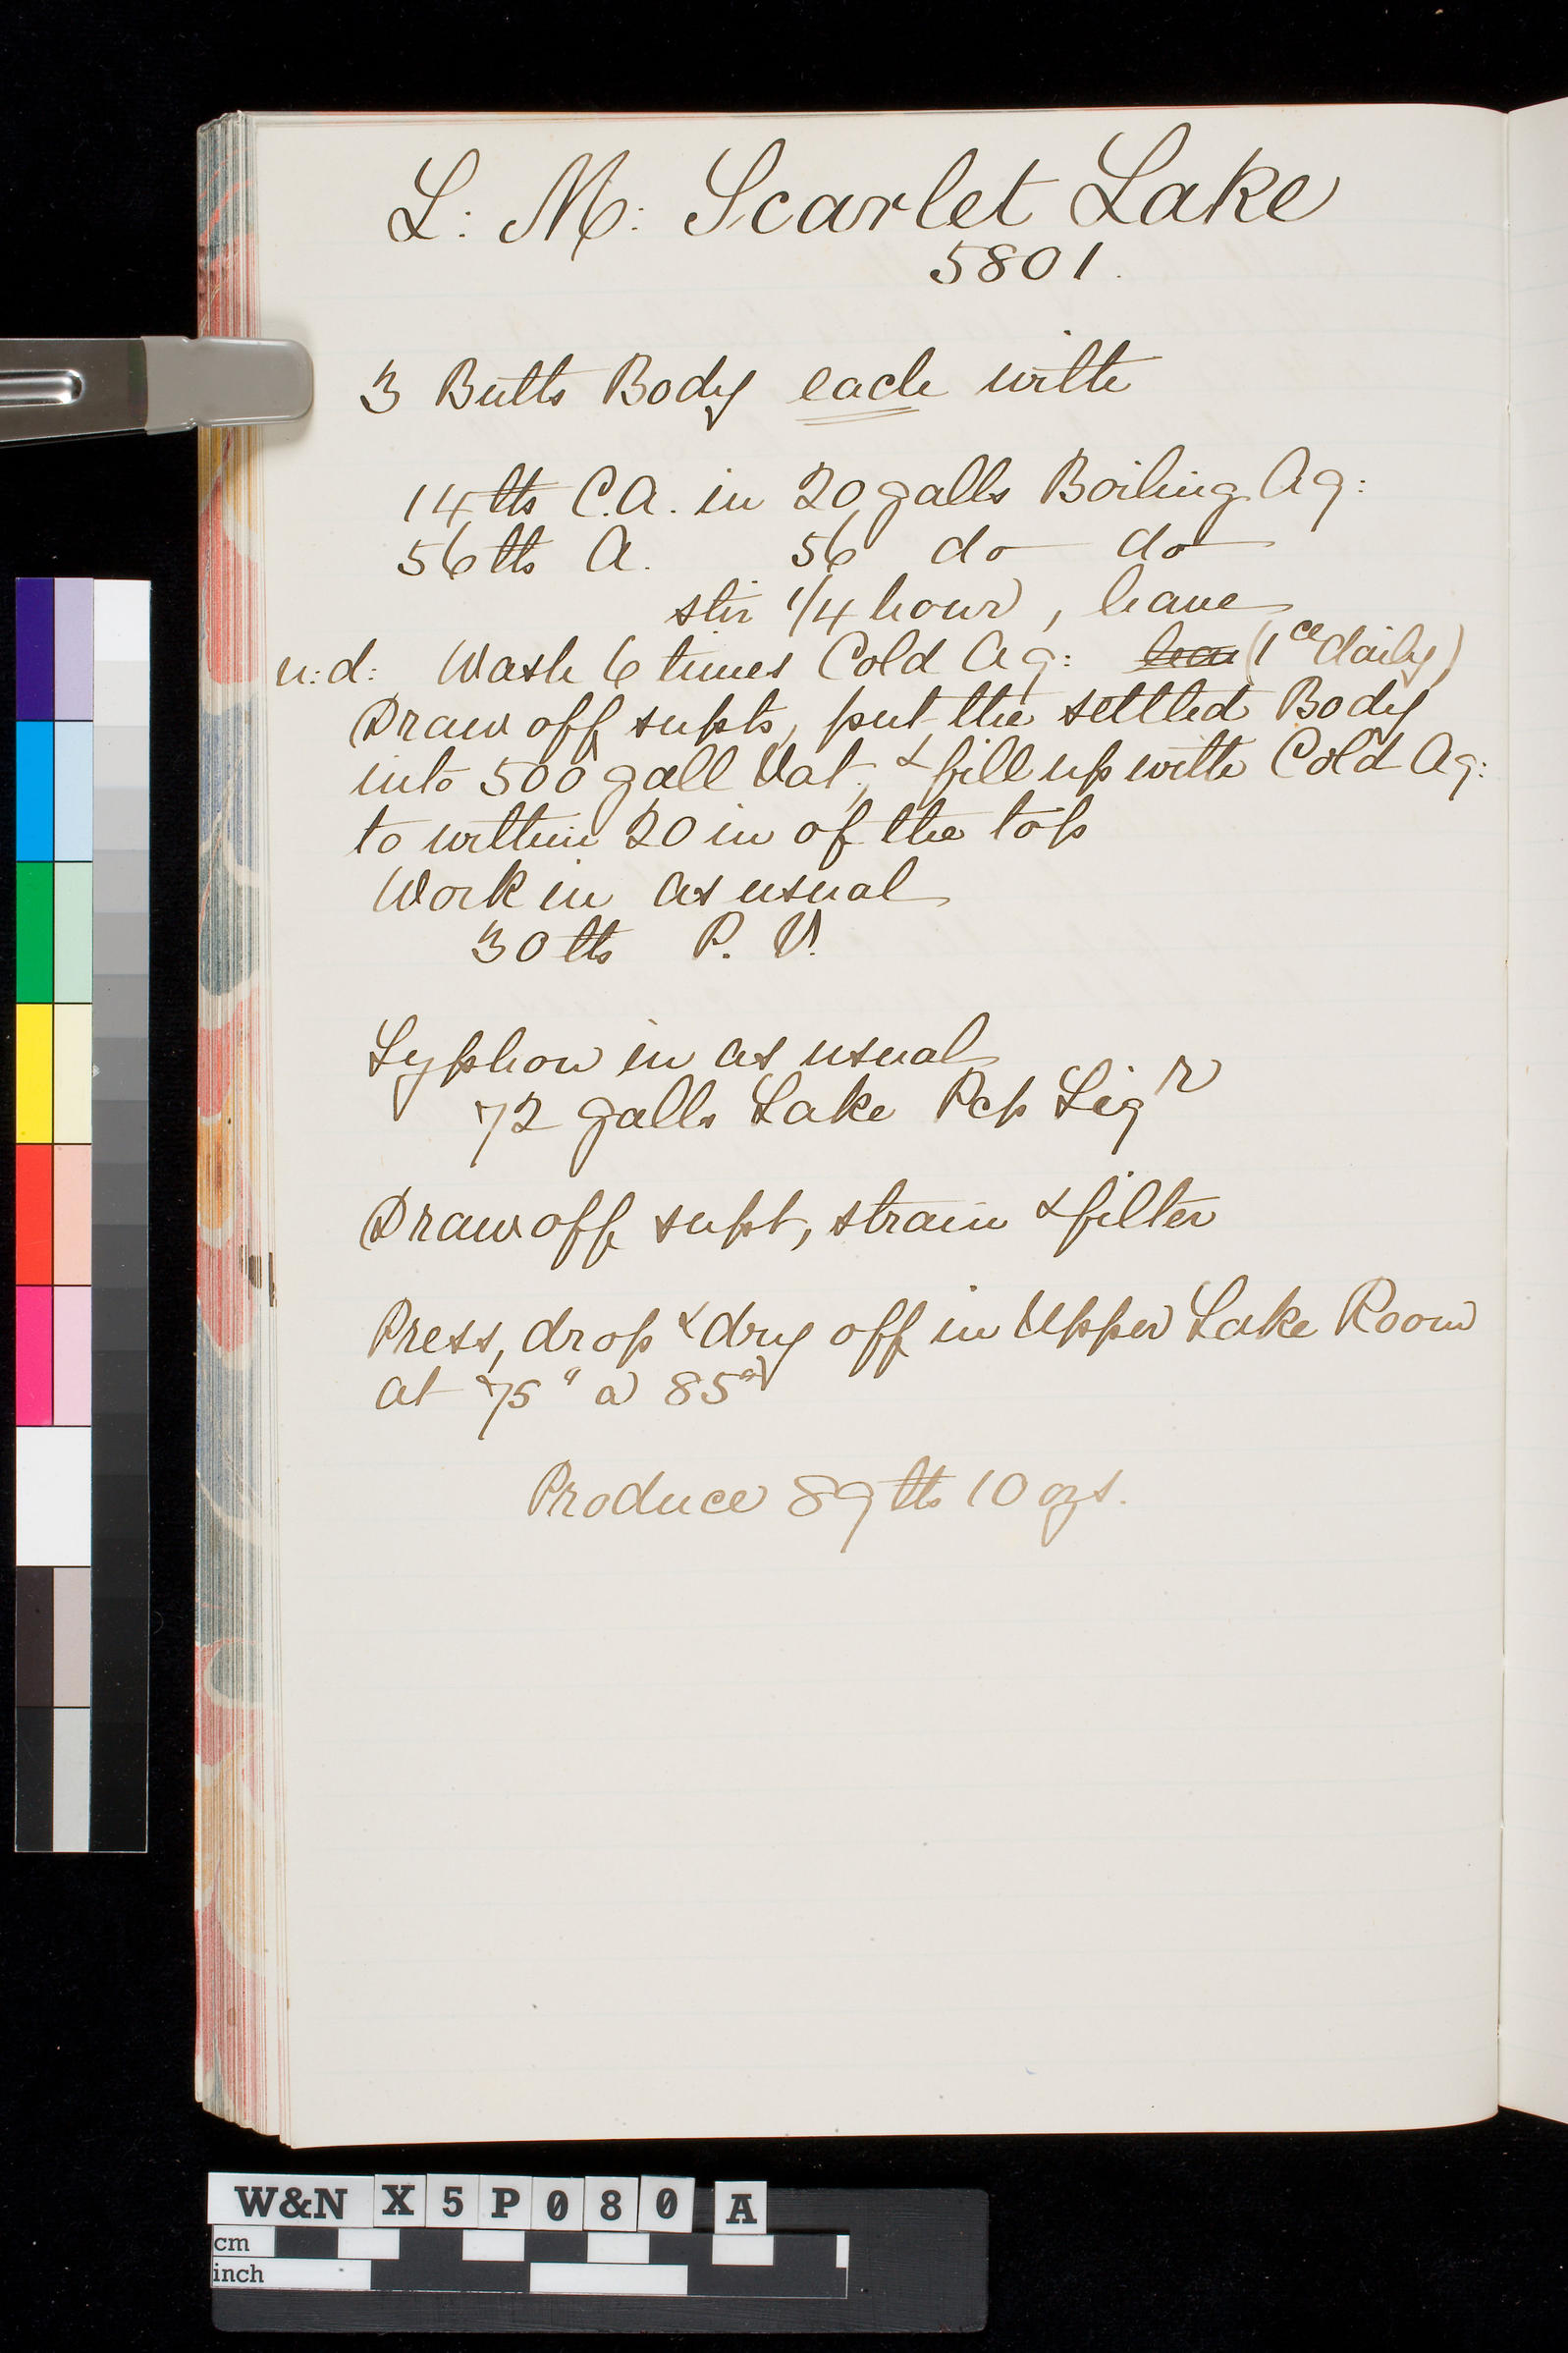 L: M: Scarlet Lake
5801.
3 Butts Body each with
14 lbs C.A. in 20 galls Boiling Aq:
56 lbs A. 56 do do
stir 1/4 hour, leave
n:d: Wash 6 times Cold Aq: (1ce daily)
Draw off supts, put the settled Body
into 500 gall Vat, & fill up with Cold Aq:
to within 20 in of the top
Work in as usual
30 lbs P. V.
Syphon in as usual
72 galls Lake Pcp Liqr
Draw off supt, strain & filter
Press, drop & dry off in Upper Lake Room
at 75° a 85°
Produce 89 lbs 10 ozs.
W&N X5P080 A
cm
inch